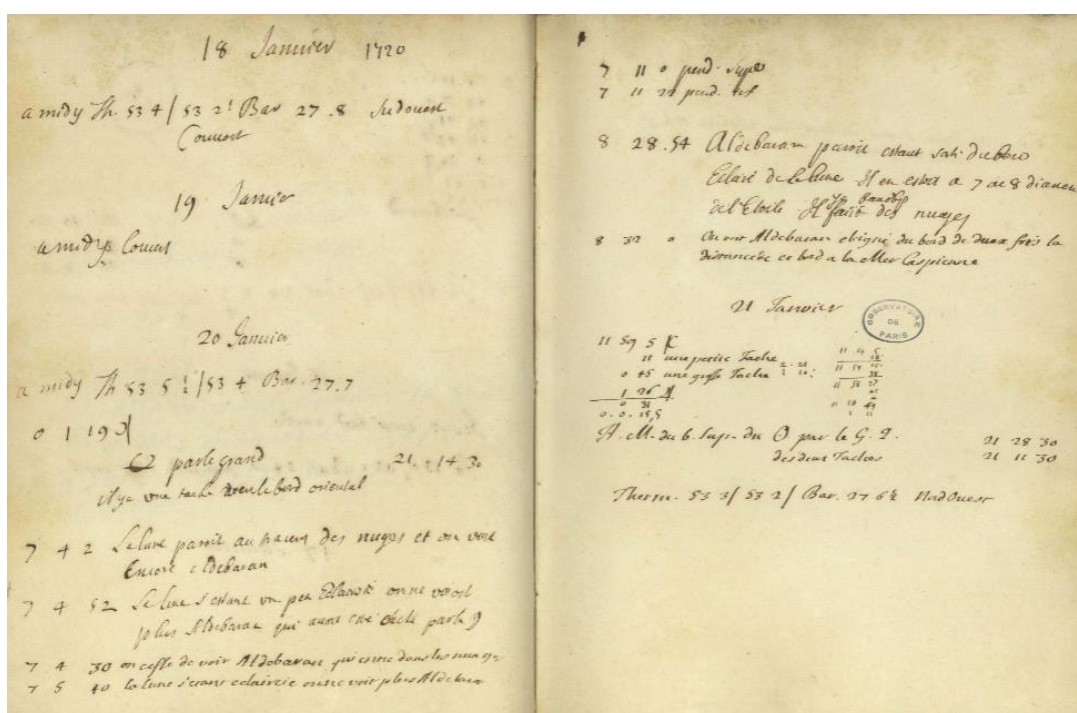 18 Janvier 1720
a midy Th. 53 4 / 53 2! Bar 27 .8 Sudouest
Couvert
19 Janvier
a midy Couvert
20 Janvier
a midy Th 53 5 ½ / 53 4 Bar. 27.7
0 1 19
par le grand 21. 14 30
il y a une tache vers le bord oriental
7 4 2 La lune paroit au travers des nuages et on voit
Encore Aldebaran
7 4 52 La lune s'estant un peu Eclaircie on ne voioit
plus Aldebaran qui aura esté caché par la
7 4 30 on cesse de voir Aldebaran qui entre dans les nuages
7 5 40 la lune s'etant eclaircie on ne voit plus Aldebaran
7 11 0 pend. supe
7 11 22 pend.
8 28.54 Aldebaran paroit estant sorti du bord
Eclairé de la lune Il en estoit a 7 ou 8 diametres
de l'Etoile Il faut des nuages
8 32 0 On voit Aldebaran eloigné du bord de deux fois la
distance de ce bord a la Mer Caspienne
21 Janvier
OBSERVATOIRE DE PARIS
11 59 5
11 une petite Tache 2. 21
0 45 une grosse Tache
1 26
0 31
0. 0. 15,5
H. M. du b. Sup. du O par le G. Q. 21 28 30
des deux Taches 21 11 30
Therm. 53 3 / 53 2 / Bar. 27 6½ Nord Ouest